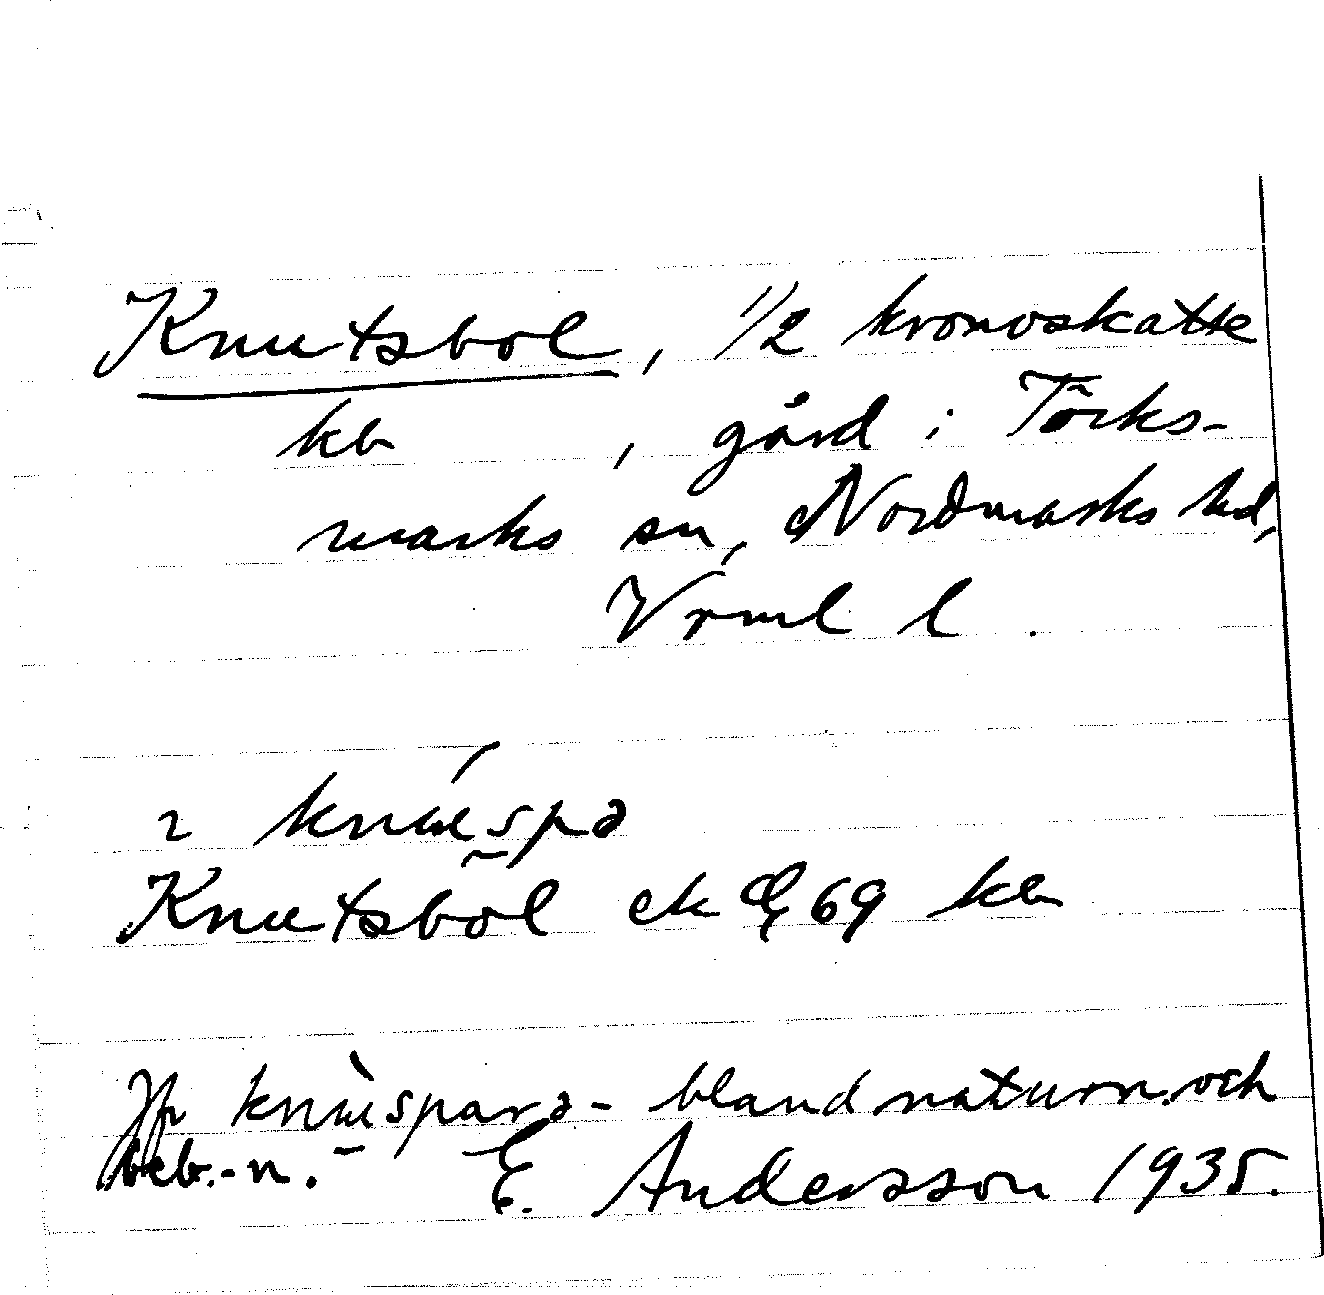 Knutsbol, 1/2 kronoskatte
kb, gård i Töcks-
marks sn, Nordmarks hd,
Vrml l.
2 knu̶spə
Knutsbōl ek G 69 kb
Jfr knu̶sparə- bland naturn. och
beb.-n. E. Andersson 1935.